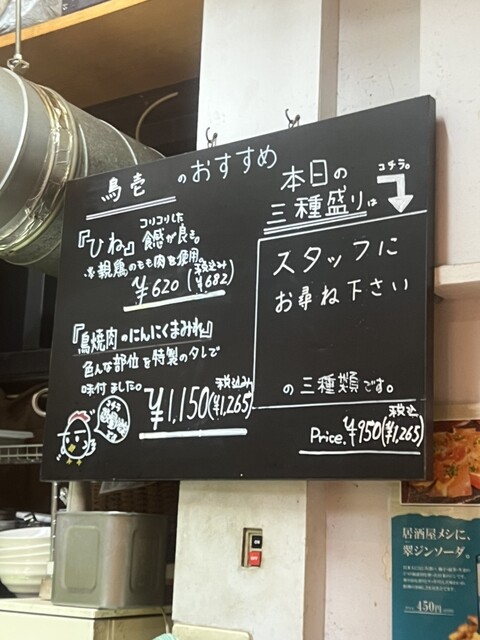 鳥壱 のおすすめ
『ひね』コリコリした食感が良き。
※親鶏のもも肉を使用。
¥620(税込み¥682)
『鳥焼肉のにんにくまみれ』
色んな部位を特製のタレで
味付ました。
¥1,150(税込み¥1,265)
本日の
三種盛りは
コチラ。
スタッフに
お尋ね下さい
の三種類です。
Price. ¥950(税込¥1,265)
居酒屋メシに、
翠ジンソーダ。
450円